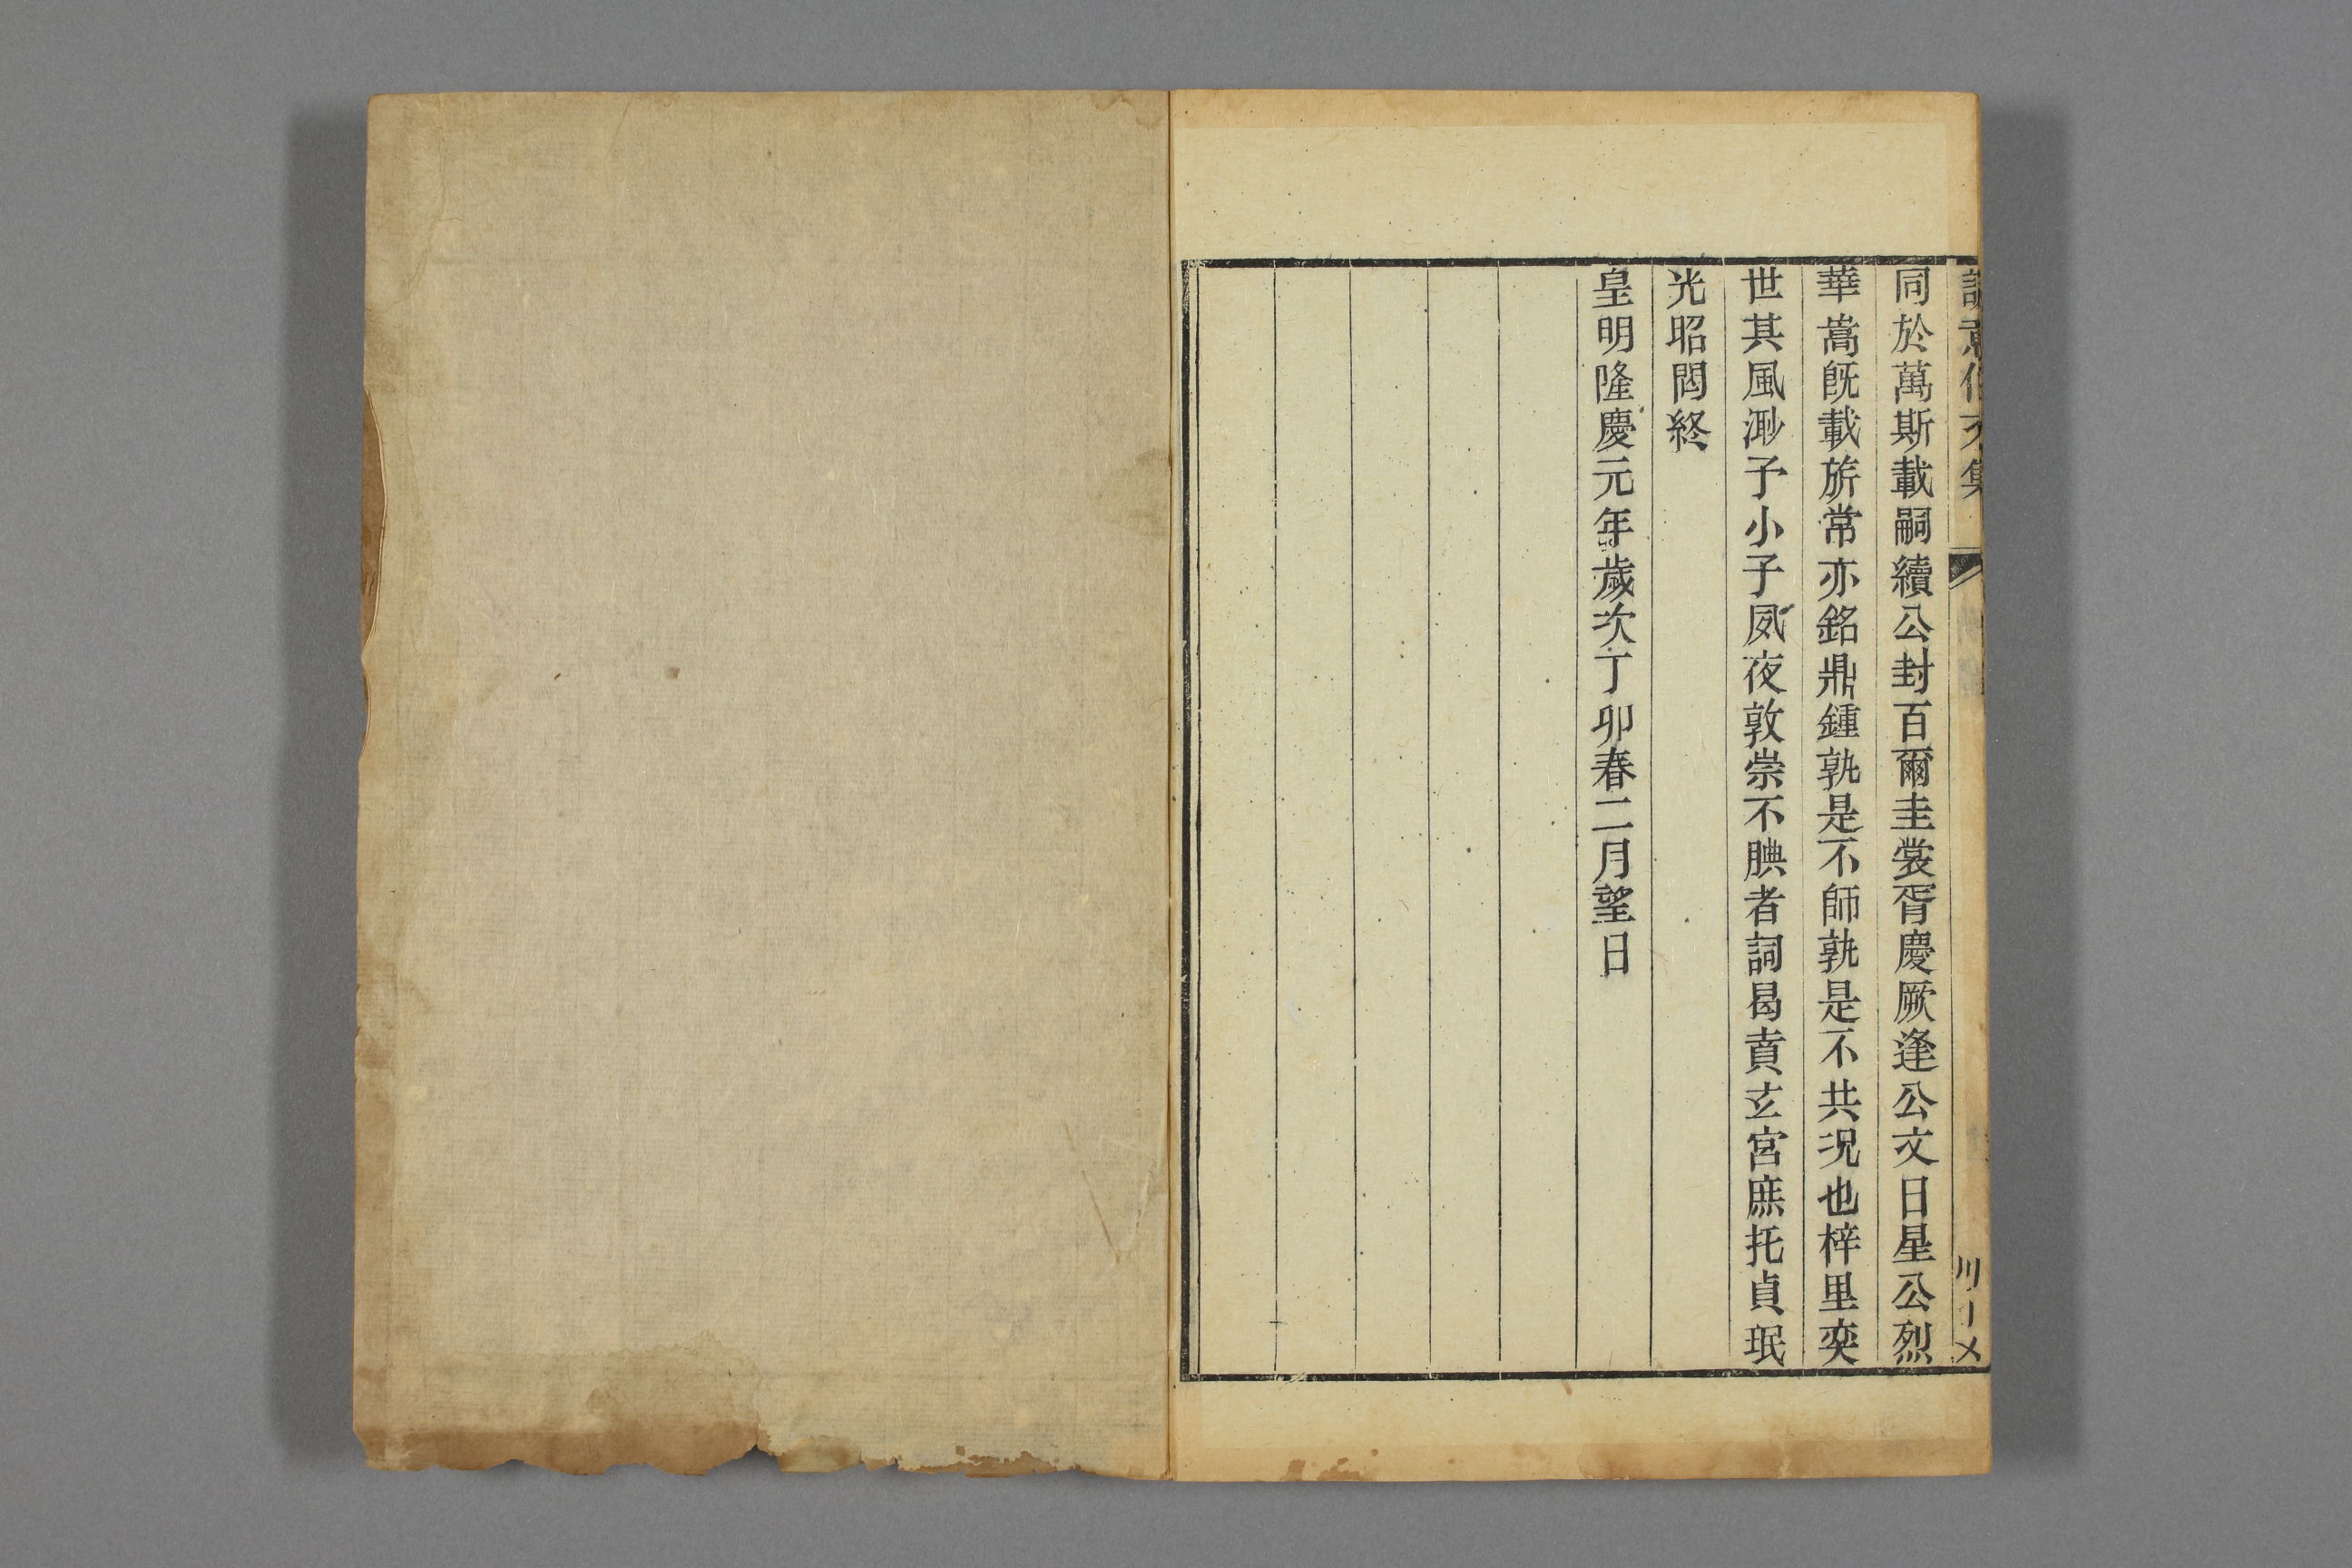 誠意伯文集
同於萬斯載嗣續公封百爾圭裳胥慶厥逢公文日星公烈
華嵩既載旂常亦銘鼎鍾孰是不師孰是不共况也梓里奕
世其風渺予小子夙夜敦崇不腆者詞曷賁玄宮庶托貞珉
光昭罔終
皇明隆慶元年歲次丁卯春二月望日